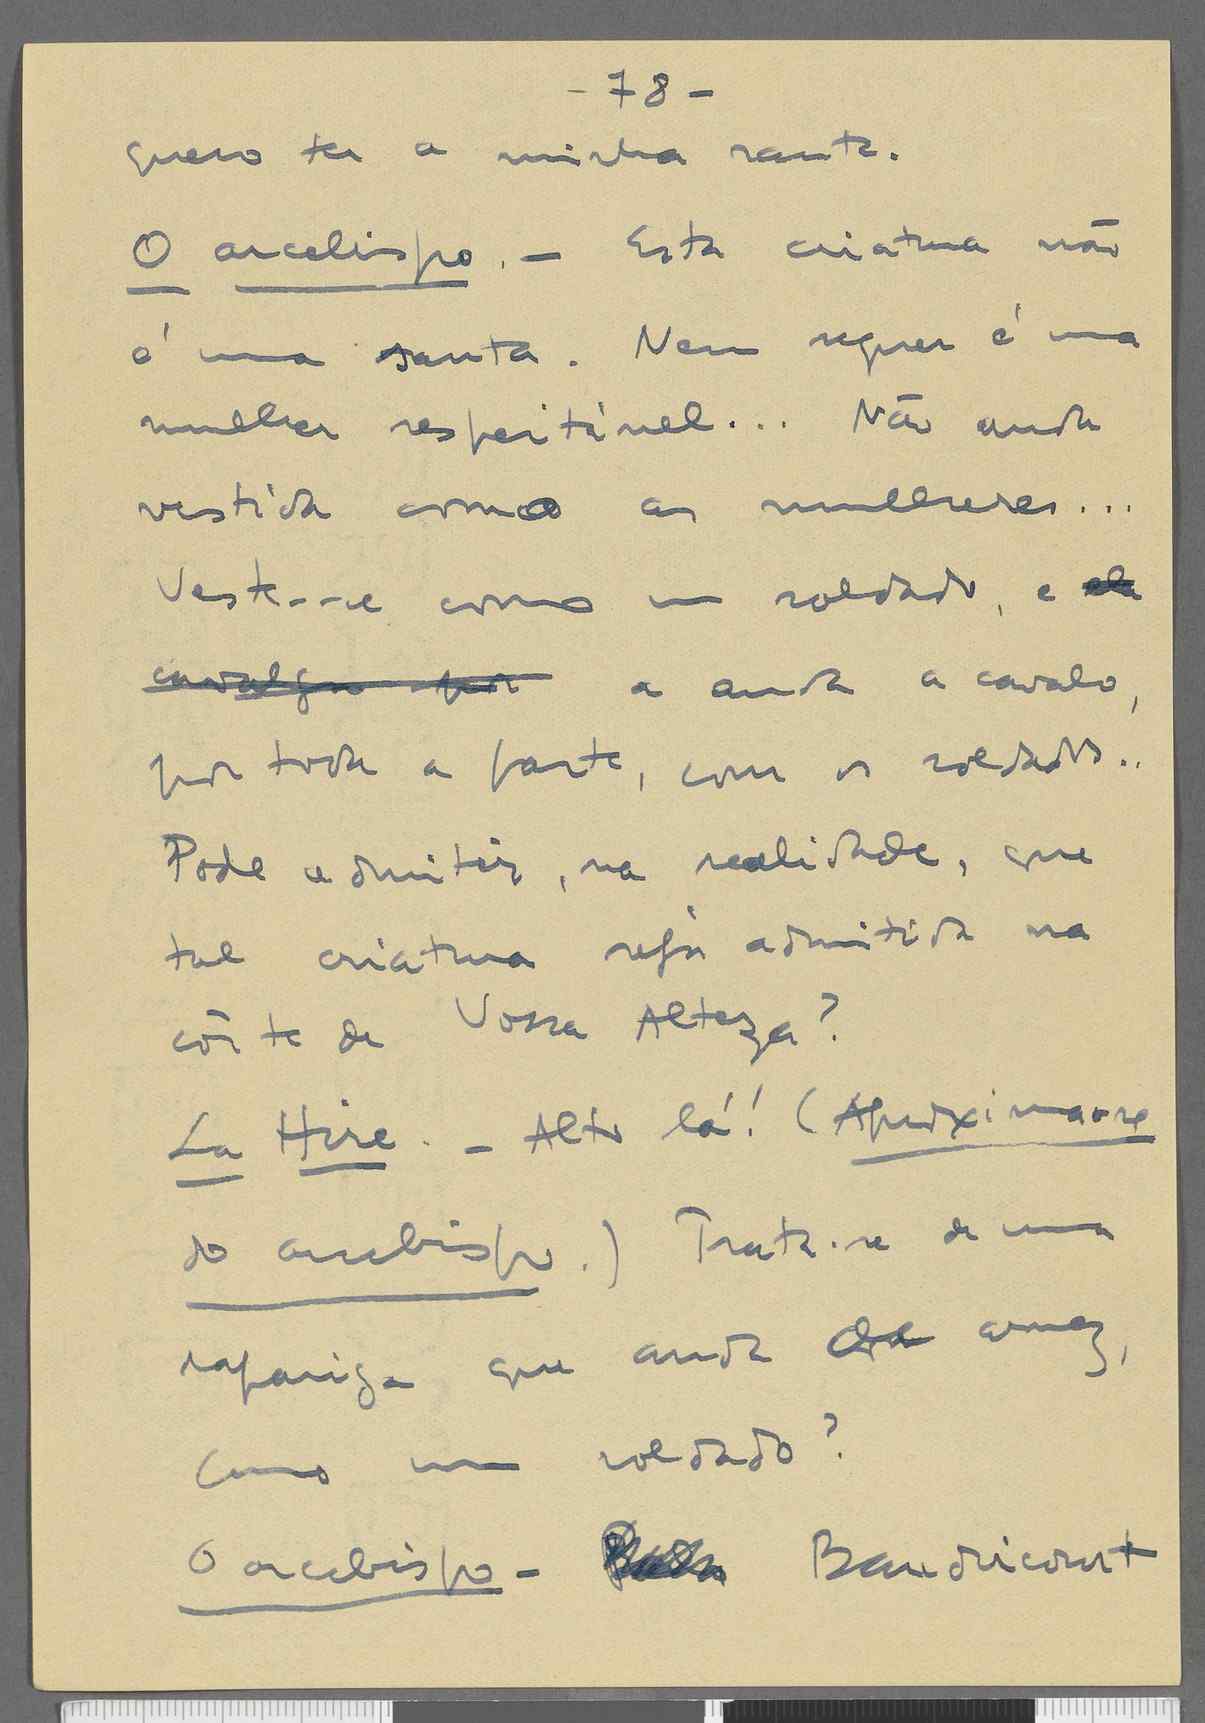 - 78 -
quero ter a minha santa.
O arcebispo. - Esta criatura não
é uma santa. Nem sequer é uma
mulher respeitável... Não anda
vestida como as mulheres...
Veste-se como um soldado, e
cavalga por a anda a cavalo,
por toda a parte, com os soldados..
Pode admitir, na realidade, que
tal criatura seja admitida na
côrte de Vossa Alteza?
La Hire. - Alto lá! (Aproxima-se
do arcebispo.) Trata-se de uma
rapariga que anda de arnez,
como um soldado?
O arcebispo - Baudricourt